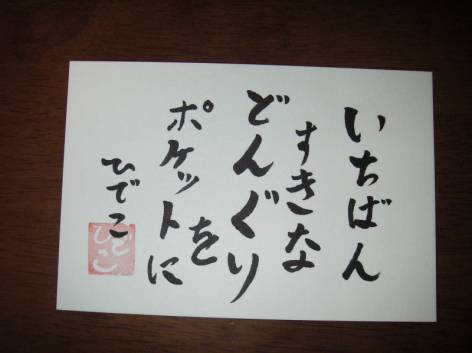 いちばん
すきな
どんぐり
を
ポケットに
ひでこ
ひでこ